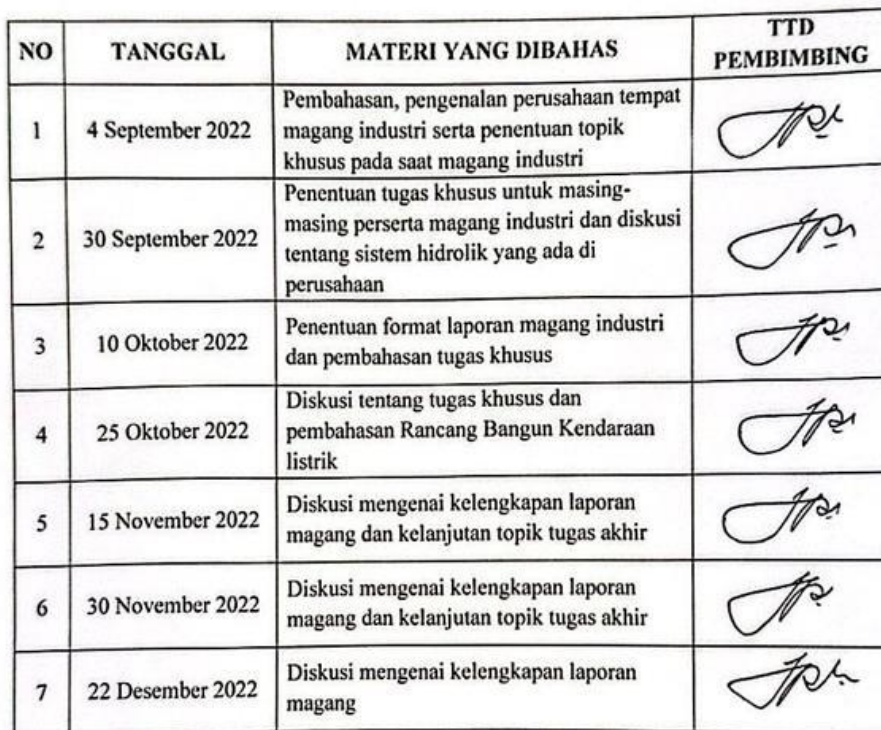 NO TANGGAL MATERI YANG DIBAHAS TTD
PEMBIMBING
1 4 September 2022 Pembahasan, pengenalan perusahaan tempat
magang industri serta penentuan topik
khusus pada saat magang industri
2 30 September 2022 Penentuan tugas khusus untuk masing-
masing perserta magang industri dan diskusi
tentang sistem hidrolik yang ada di
perusahaan
3 10 Oktober 2022 Penentuan format laporan magang industri
dan pembahasan tugas khusus
4 25 Oktober 2022 Diskusi tentang tugas khusus dan
pembahasan Rancang Bangun Kendaraan
listrik
5 15 November 2022 Diskusi mengenai kelengkapan laporan
magang dan kelanjutan topik tugas akhir
6 30 November 2022 Diskusi mengenai kelengkapan laporan
magang dan kelanjutan topik tugas akhir
7 22 Desember 2022 Diskusi mengenai kelengkapan laporan
magang